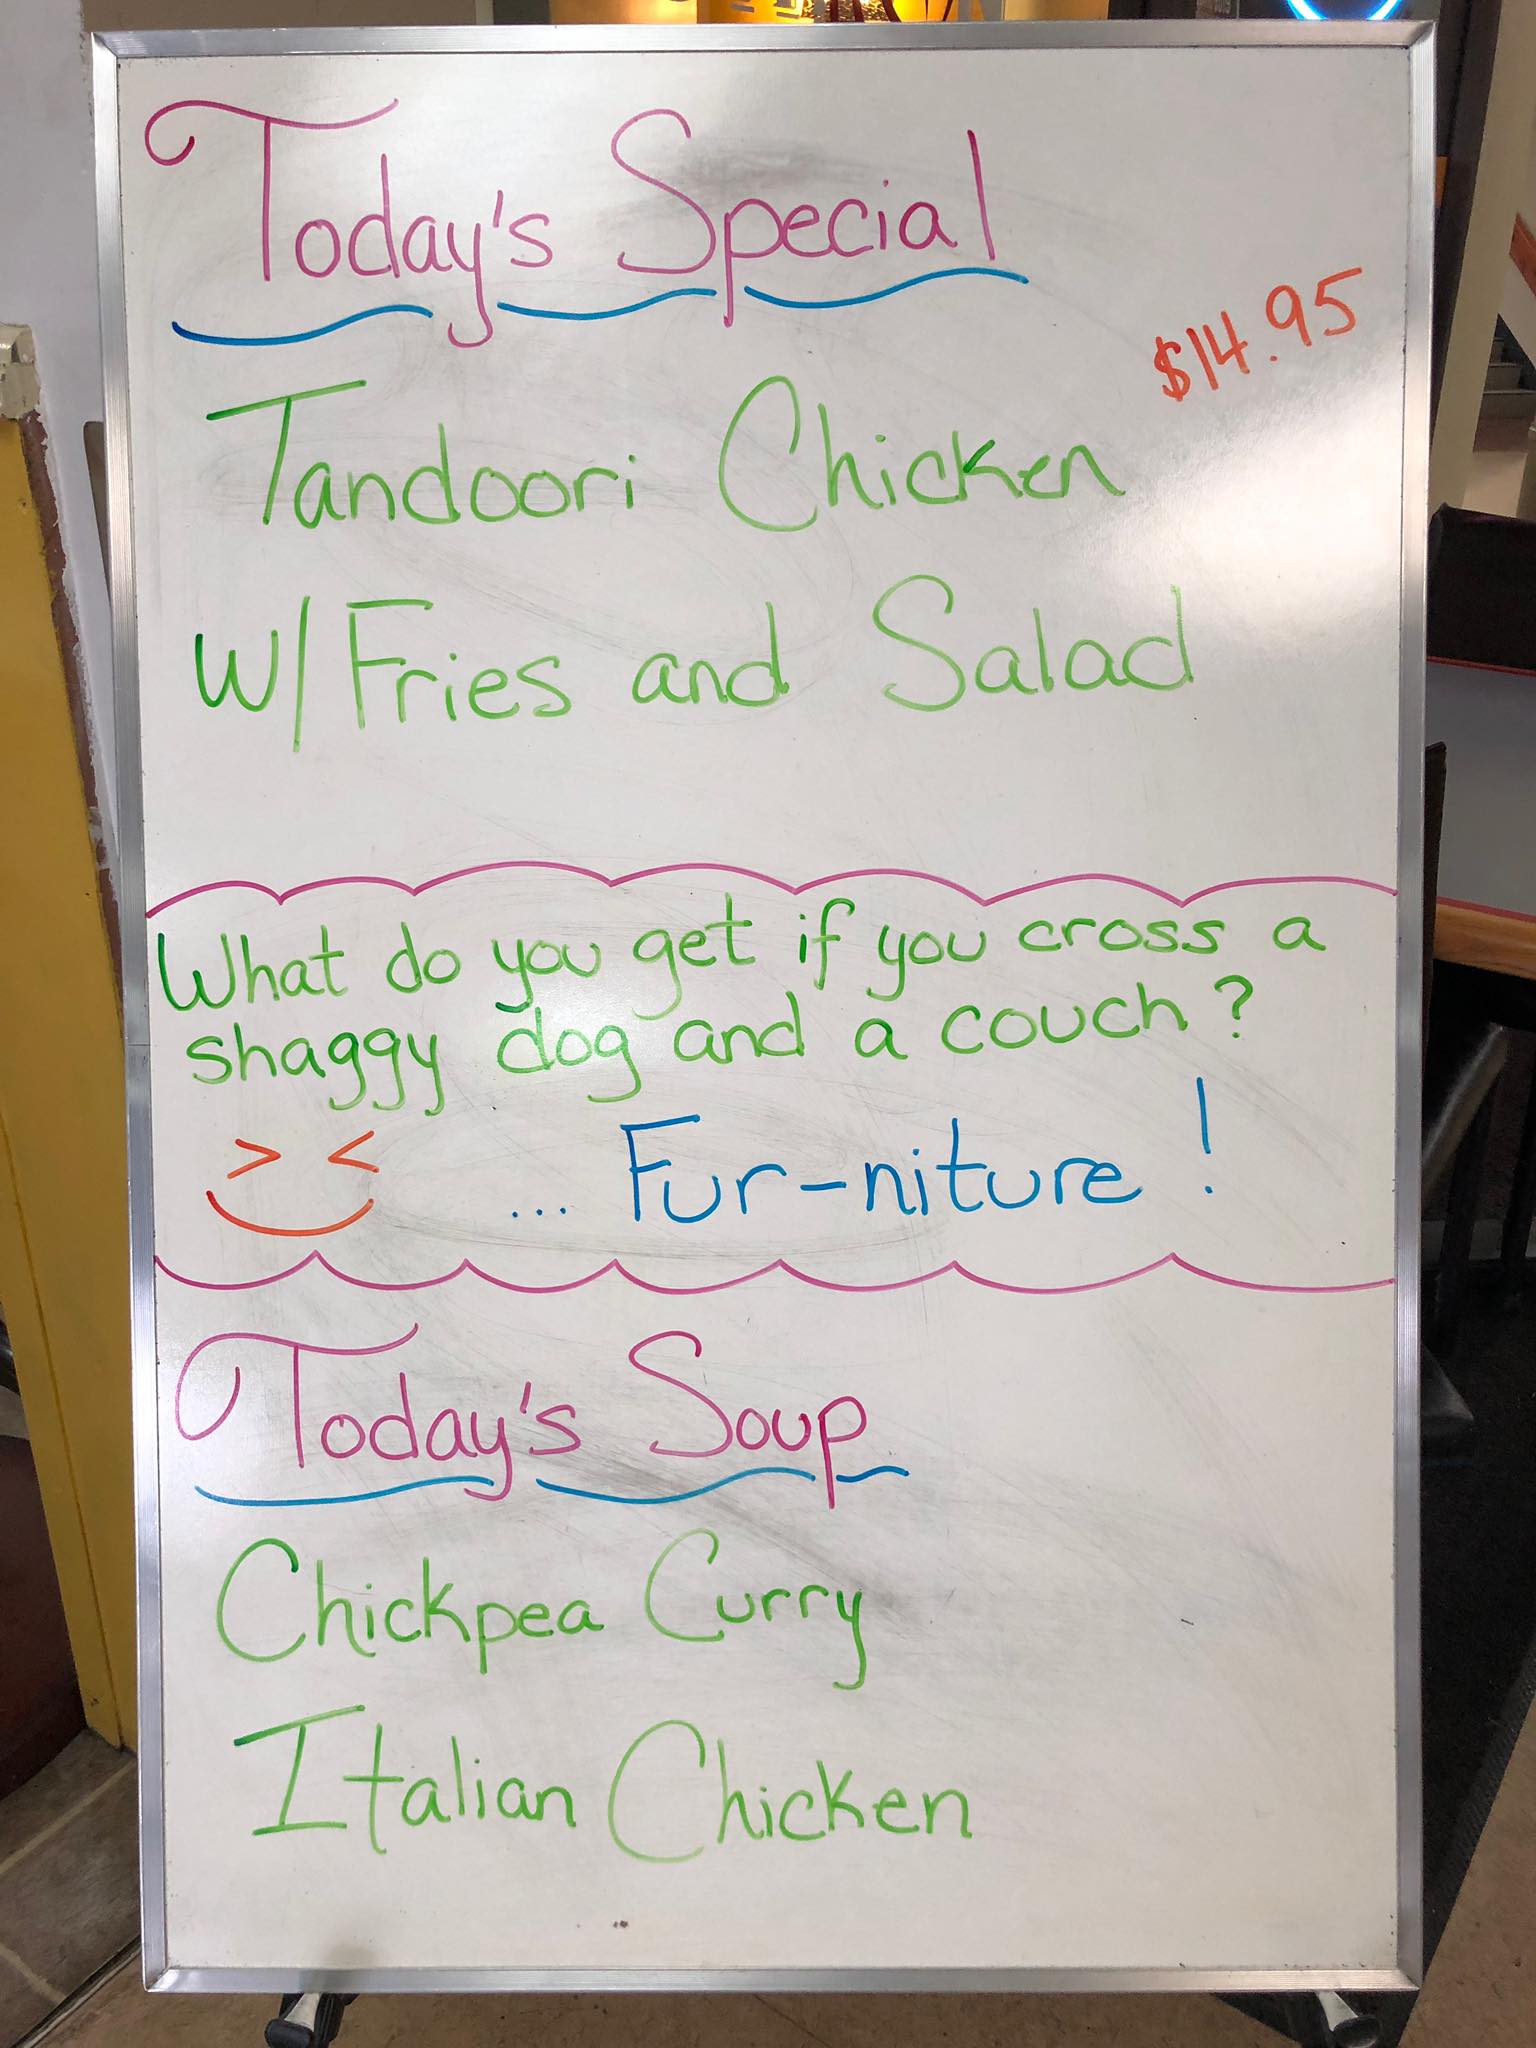 Today's Special
$14.95
Tandoori Chicken
W/ Fries and Salad
What do you get if you cross a
shaggy dog and a couch?
... Fur-niture!
Today's Soup
Chickpea Curry
Italian Chicken